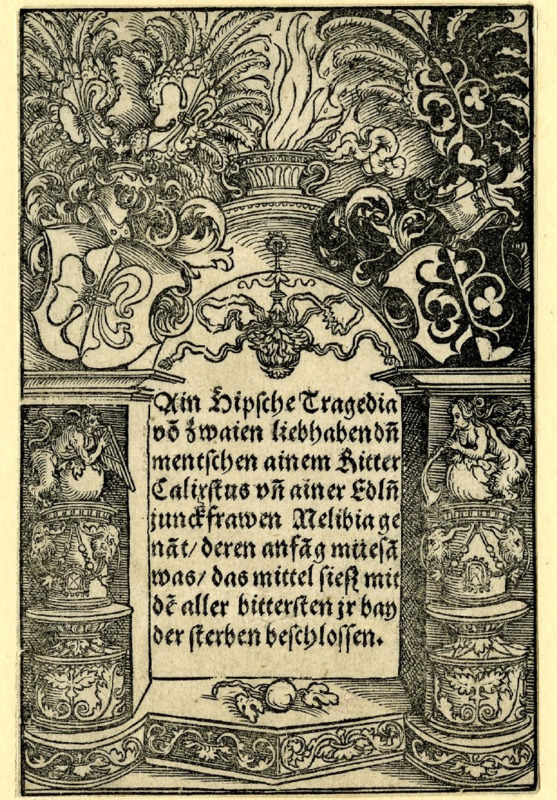 Ain Hipsche Tragedia
vō zwaien liebhabendn̄
mentschen ainem Ritter
Calixstus vn̄ ainer Edln̄
junckfrawen Melibia ge
nāt/ deren anfāg müesā
was/ das mittel siesz mit
dē aller bittersten jr bay
der sterben beschlossen.